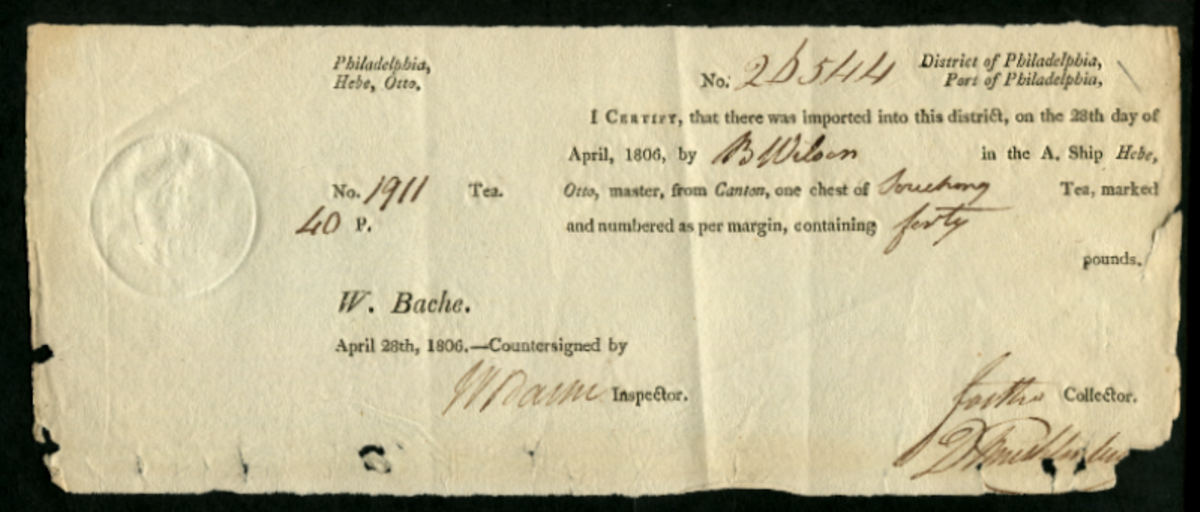 Philadelphia,
Hebe, Otto.
No. 26544 District of Philadelphia,
Port of Philadelphia,
I CERTIFY, that there was imported into this district, on the 28th day of
April, 1806, by B Wilson in the A. Ship Hebe,
No. 1911 Tea. Otto, master, from Canton, one chest of Souchong Tea, marked
40 P. and numbered as per margin, containing forty
pounds.
W. Bache.
April 28th, 1806.—Countersigned by
W Bache Inspector.
for the Collector.